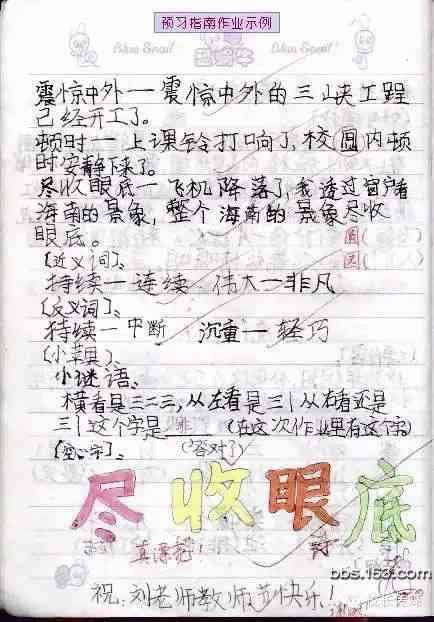 预习指南作业示例
Blue Snail
Blue Snail
震惊中外一震惊中外的三峡工程
已经开工了。
顿时一上课铃打响了,校圆内顿
时安静下来了。
尽收眼底一飞机降落了,我透过窗户看
海南的景象,整个海南的景象尽收
眼底。
圆(
园(
〔近义词〕、
持续一连续 伟大一非凡
〔反义词〕、
持续一中断 沉重一轻巧
〔小菜具〕、
小谜语、
横看是三二三,从左看是三|从右看还是
三|这个字是 非 (在这次作业里有这个字)
(答对了)
尽收眼底
真漂亮!
好
bbs.163.com
祝:刘老师教师节快乐!
谢谢